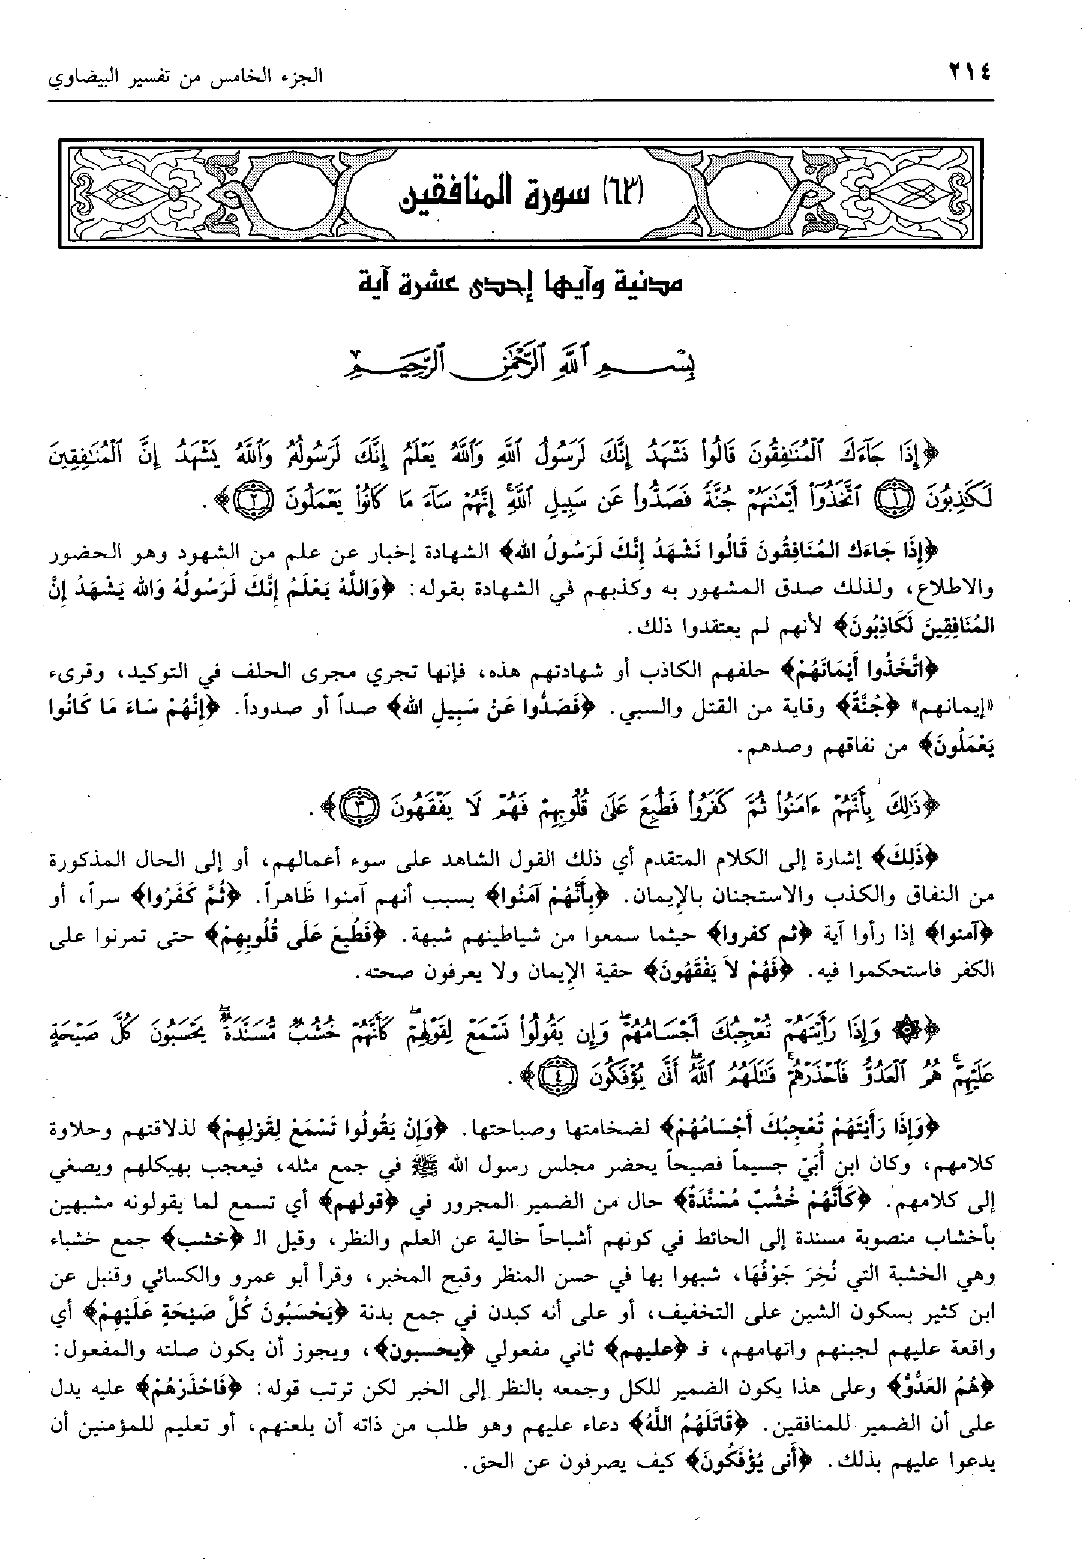 ٢١٤
الجزء الخامس من تفسير البيضاوي
(٦٣) سورة المنافقين
مدنية وآيها إحدى عشرة آية
بِسْمِ اللَّهِ الرَّحْمَٰنِ الرَّحِيمِ
﴿إِذَا جَآءَكَ ٱلْمُنَٰفِقُونَ قَالُوا۟ نَشْهَدُ إِنَّكَ لَرَسُولُ ٱللَّهِ وَٱللَّهُ يَعْلَمُ إِنَّكَ لَرَسُولُهُۥ وَٱللَّهُ يَشْهَدُ إِنَّ ٱلْمُنَٰفِقِينَ
لَكَٰذِبُونَ ﴿١﴾ ٱتَّخَذُوٓا۟ أَيْمَٰنَهُمْ جُنَّةً فَصَدُّوا۟ عَن سَبِيلِ ٱللَّهِ إِنَّهُمْ سَآءَ مَا كَانُوا۟ يَعْمَلُونَ ﴿٢﴾﴾.
﴿إِذَا جَاءَكَ المُنَافِقُونَ قَالُوا نَشْهَدُ إِنَّكَ لَرَسُولُ الله﴾ الشهادة إخبار عن علم من الشهود وهو الحضور
والاطلاع، ولذلك صدق المشهور به وكذبهم في الشهادة بقوله: ﴿وَاللَّهُ يَعْلَمُ إِنَّكَ لَرَسُولُهُ وَالله يَشْهَدُ إِنَّ
المُنَافِقِينَ لَكَاذِبُونَ﴾ لأنهم لم يعتقدوا ذلك.
﴿اتَّخَذُوا أَيْمَانَهُمْ﴾ حلفهم الكاذب أو شهادتهم هذه، فإنها تجري مجرى الحلف في التوكيد، وقرىء
«إيمانهم» ﴿جُنَّةً﴾ وقاية من القتل والسبي. ﴿فَصَدُّوا عَنْ سَبِيلِ الله﴾ صداً أو صدوداً. ﴿إِنَّهُمْ سَاءَ مَا كَانُوا
يَعْمَلُونَ﴾ من نفاقهم وصدهم.
﴿ذَٰلِكَ بِأَنَّهُمْ ءَامَنُوا۟ ثُمَّ كَفَرُوا۟ فَطُبِعَ عَلَىٰ قُلُوبِهِمْ فَهُمْ لَا يَفْقَهُونَ ﴿٣﴾﴾.
﴿ذَلِكَ﴾ إشارة إلى الكلام المتقدم أي ذلك القول الشاهد على سوء أعمالهم، أو إلى الحال المذكورة
من النفاق والكذب والاستجنان بالإيمان. ﴿بِأَنَّهُمْ آمَنُوا﴾ بسبب أنهم آمنوا ظاهراً. ﴿ثُمَّ كَفَرُوا﴾ سراً، أو
﴿آمنوا﴾ إذا رأوا آية ﴿ثم كفروا﴾ حيثما سمعوا من شياطينهم شبهة. ﴿فَطُبِعَ عَلَى قُلُوبِهِمْ﴾ حتى تمرنوا على
الكفر فاستحكموا فيه. ﴿فَهُمْ لاَ يَفْقَهُونَ﴾ حقية الإيمان ولا يعرفون صحته.
﴿۞ وَإِذَا رَأَيْتَهُمْ تُعْجِبُكَ أَجْسَامُهُمْ ۖ وَإِن يَقُولُوا۟ تَسْمَعْ لِقَوْلِهِمْ ۖ كَأَنَّهُمْ خُشُبٌ مُّسَنَّدَةٌ ۖ يَحْسَبُونَ كُلَّ صَيْحَةٍ
عَلَيْهِمْ ۚ هُمُ ٱلْعَدُوُّ فَٱحْذَرْهُمْ ۚ قَٰتَلَهُمُ ٱللَّهُ ۖ أَنَّىٰ يُؤْفَكُونَ ﴿٤﴾﴾.
﴿وَإِذَا رَأَيْتَهُمْ تُعْجِبُكَ أَجْسَامُهُمْ﴾ لضخامتها وصباحتها. ﴿وَإِنْ يَقُولُوا تَسْمَعْ لِقَوْلِهِمْ﴾ لذلاقتهم وحلاوة
كلامهم، وكان ابن أُبَيّ جسيماً فصيحاً يحضر مجلس رسول الله ﷺ في جمع مثله، فيعجب بهيكلهم ويصغي
إلى كلامهم. ﴿كَأَنَّهُمْ خُشُبٌ مُسَنَّدَةٌ﴾ حال من الضمير المجرور في ﴿قولهم﴾ أي تسمع لما يقولونه مشبهين
بأخشاب منصوبة مسندة إلى الحائط في كونهم أشباحاً خالية عن العلم والنظر، وقيل الـ ﴿خشب﴾ جمع خشباء
وهي الخشبة التي نُخِرَ جَوْفُهَا، شبهوا بها في حسن المنظر وقبح المخبر، وقرأ أبو عمرو والكسائي وقنبل عن
ابن كثير بسكون الشين على التخفيف، أو على أنه كبدن في جمع بدنة ﴿يَحْسَبُونَ كُلَّ صَيْحَةٍ عَلَيْهِمْ﴾ أي
واقعة عليهم لجبنهم واتهامهم، فـ ﴿عليهم﴾ ثاني مفعولي ﴿يحسبون﴾، ويجوز أن يكون صلته والمفعول:
﴿هُمُ العَدُوّ﴾ وعلى هذا يكون الضمير للكل وجمعه بالنظر إلى الخبر لكن ترتب قوله: ﴿فَاحْذَرْهُمْ﴾ عليه يدل
على أن الضمير للمنافقين. ﴿قَاتَلَهُمُ اللَّهُ﴾ دعاء عليهم وهو طلب من ذاته أن يلعنهم، أو تعليم للمؤمنين أن
يدعوا عليهم بذلك. ﴿أَنَّى يُؤْفَكُونَ﴾ كيف يصرفون عن الحق.